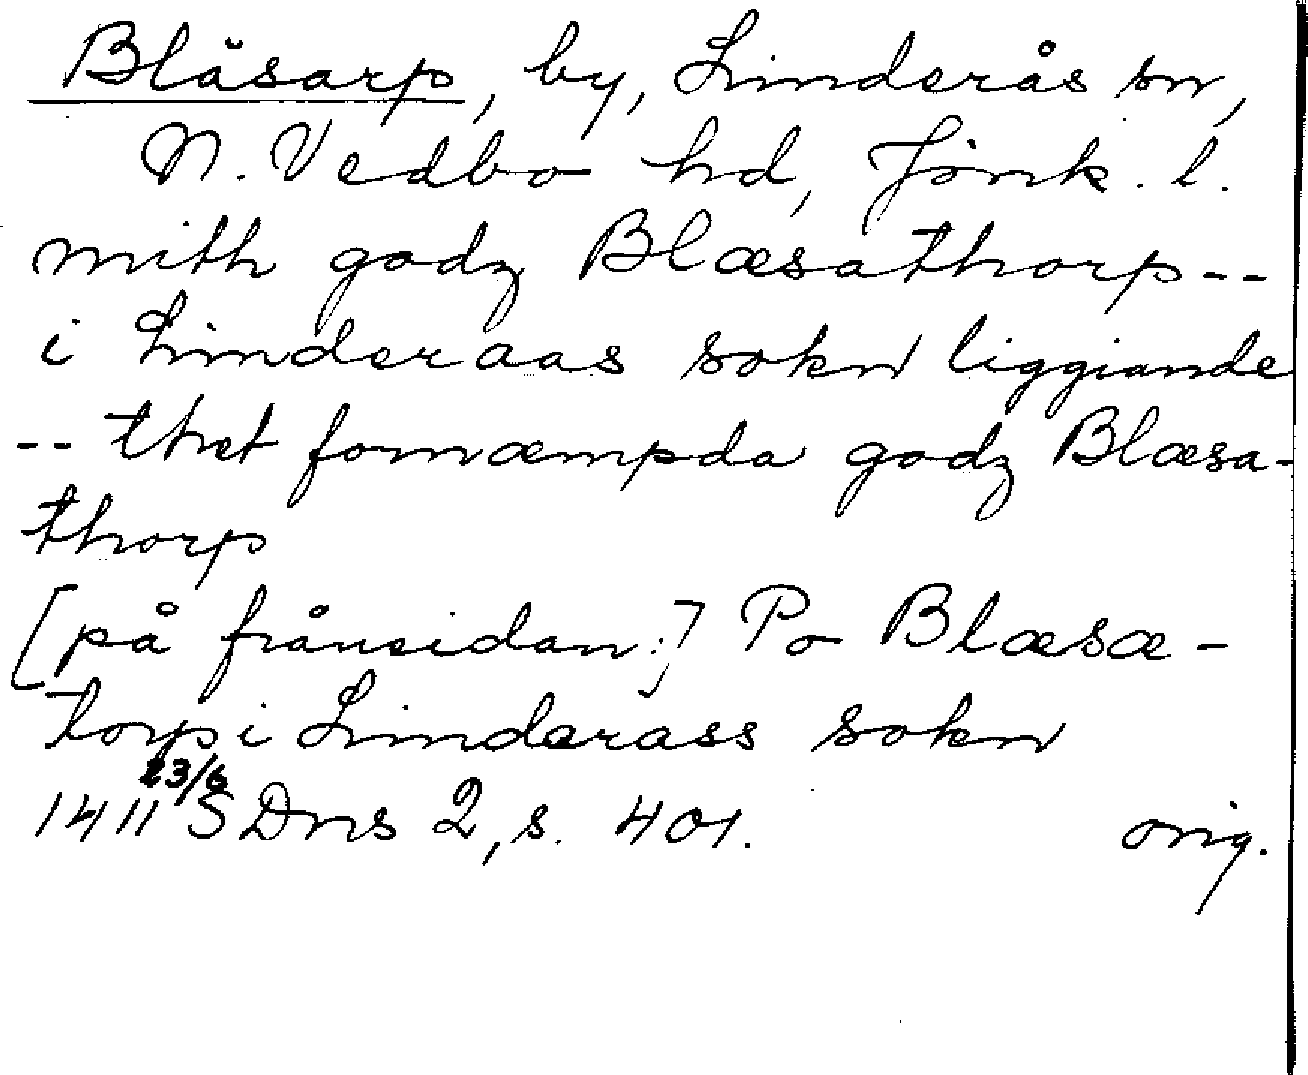 Blåsarp, by, Linderås sn,
N. Vedbo hd, Jönk. l.
mith godz Blæsathorp --
i Linderaas sokn liggiande
-- thet fornæmpda godz Blæsa-
thorp
[på frånsidan:] Po Blæsæ-
torp i Linderass sokn
1411 23/6 SDns 2, s. 401. orig.